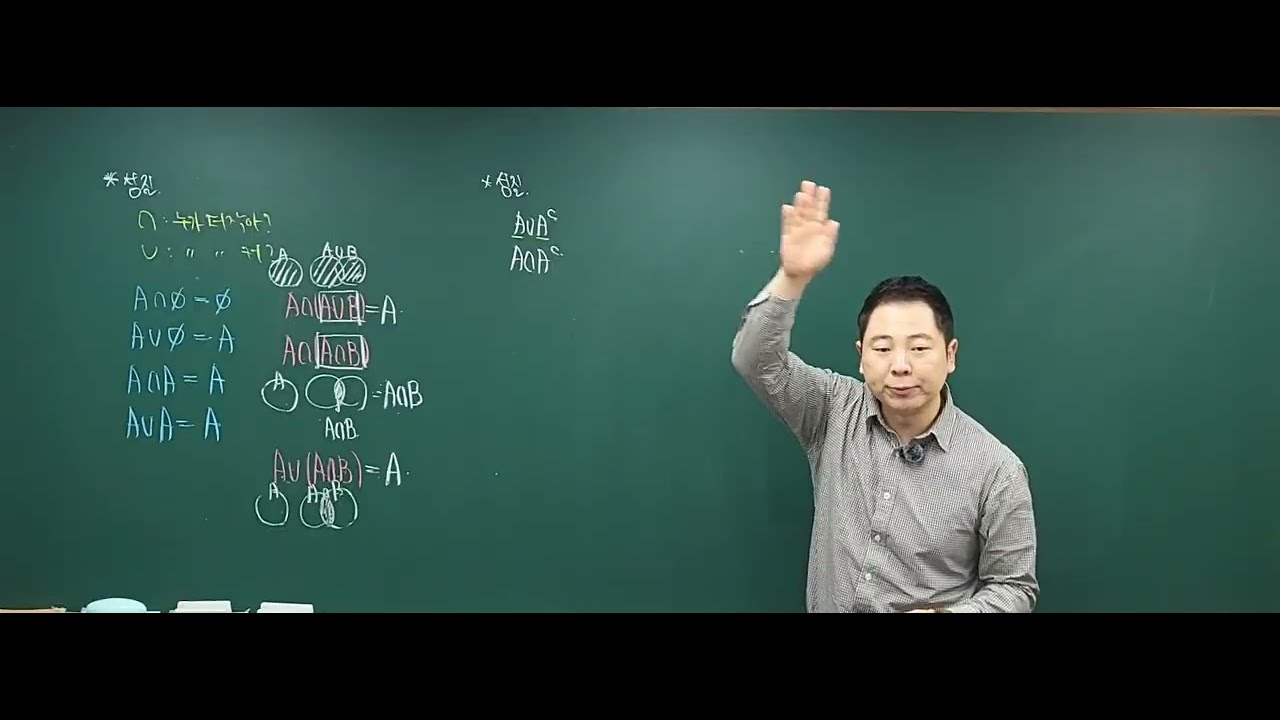 * 성질.
∩ : 누가 더 작아?
∪ : 〃 〃 커?
A∩∅ = ∅
A∪∅ = A
A∩A = A
A∪A = A
A A∪B
A∩(A∪B) = A
A∩(A∩B)
A = A∩B
A∩B
A∪(A∩B) = A.
A A∩B
* 성질.
A∪Aᶜ
A∩Aᶜ